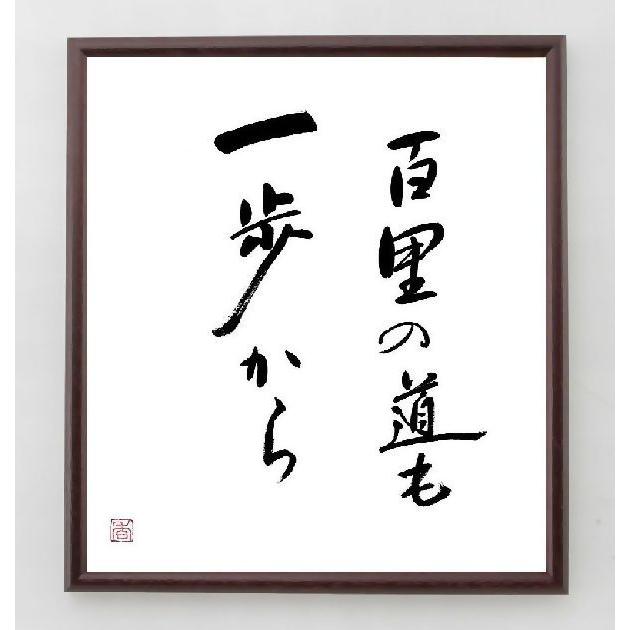 百里の道も
一歩から